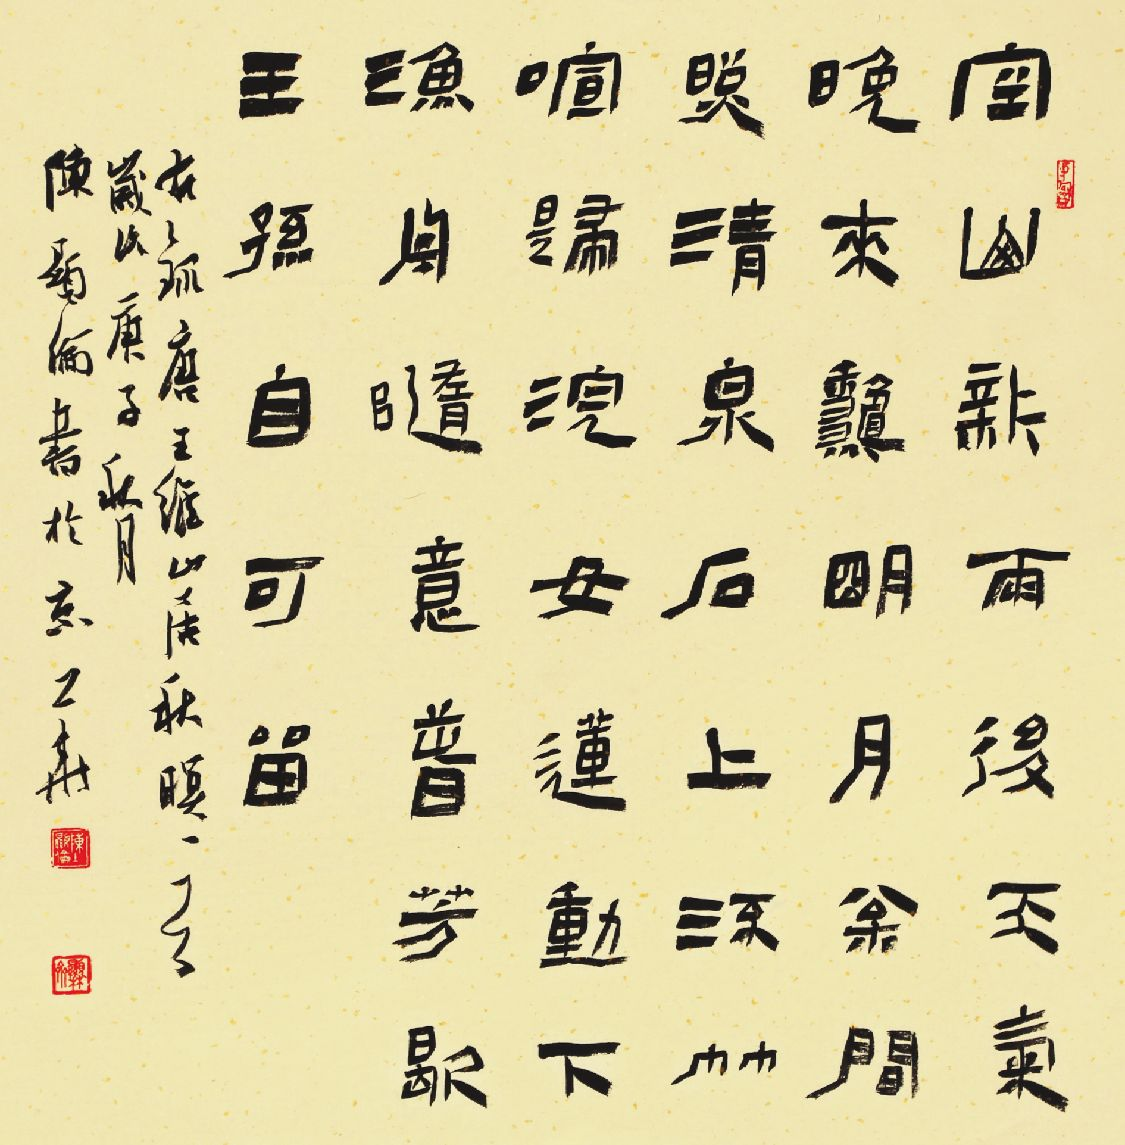 空山新雨後天氣
晚來龝明月枀間
照清泉石上流竹
喧歸浣女蓮動下
漁舟隨意春芳歇
王孫自可留
右錄唐王維山居秋暝一首
歲次庚子秋月
陳顯倫書於京